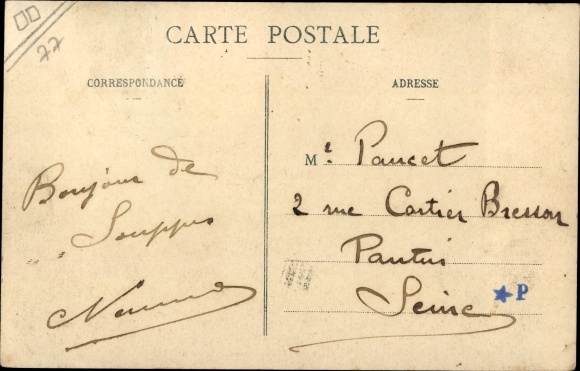 77
CARTE POSTALE
CORRESPONDANCE
Bonjour de
Souppes
ADRESSE
Mr. Paucet
2 rue Cartier Bresson
Pantin
Seine
P